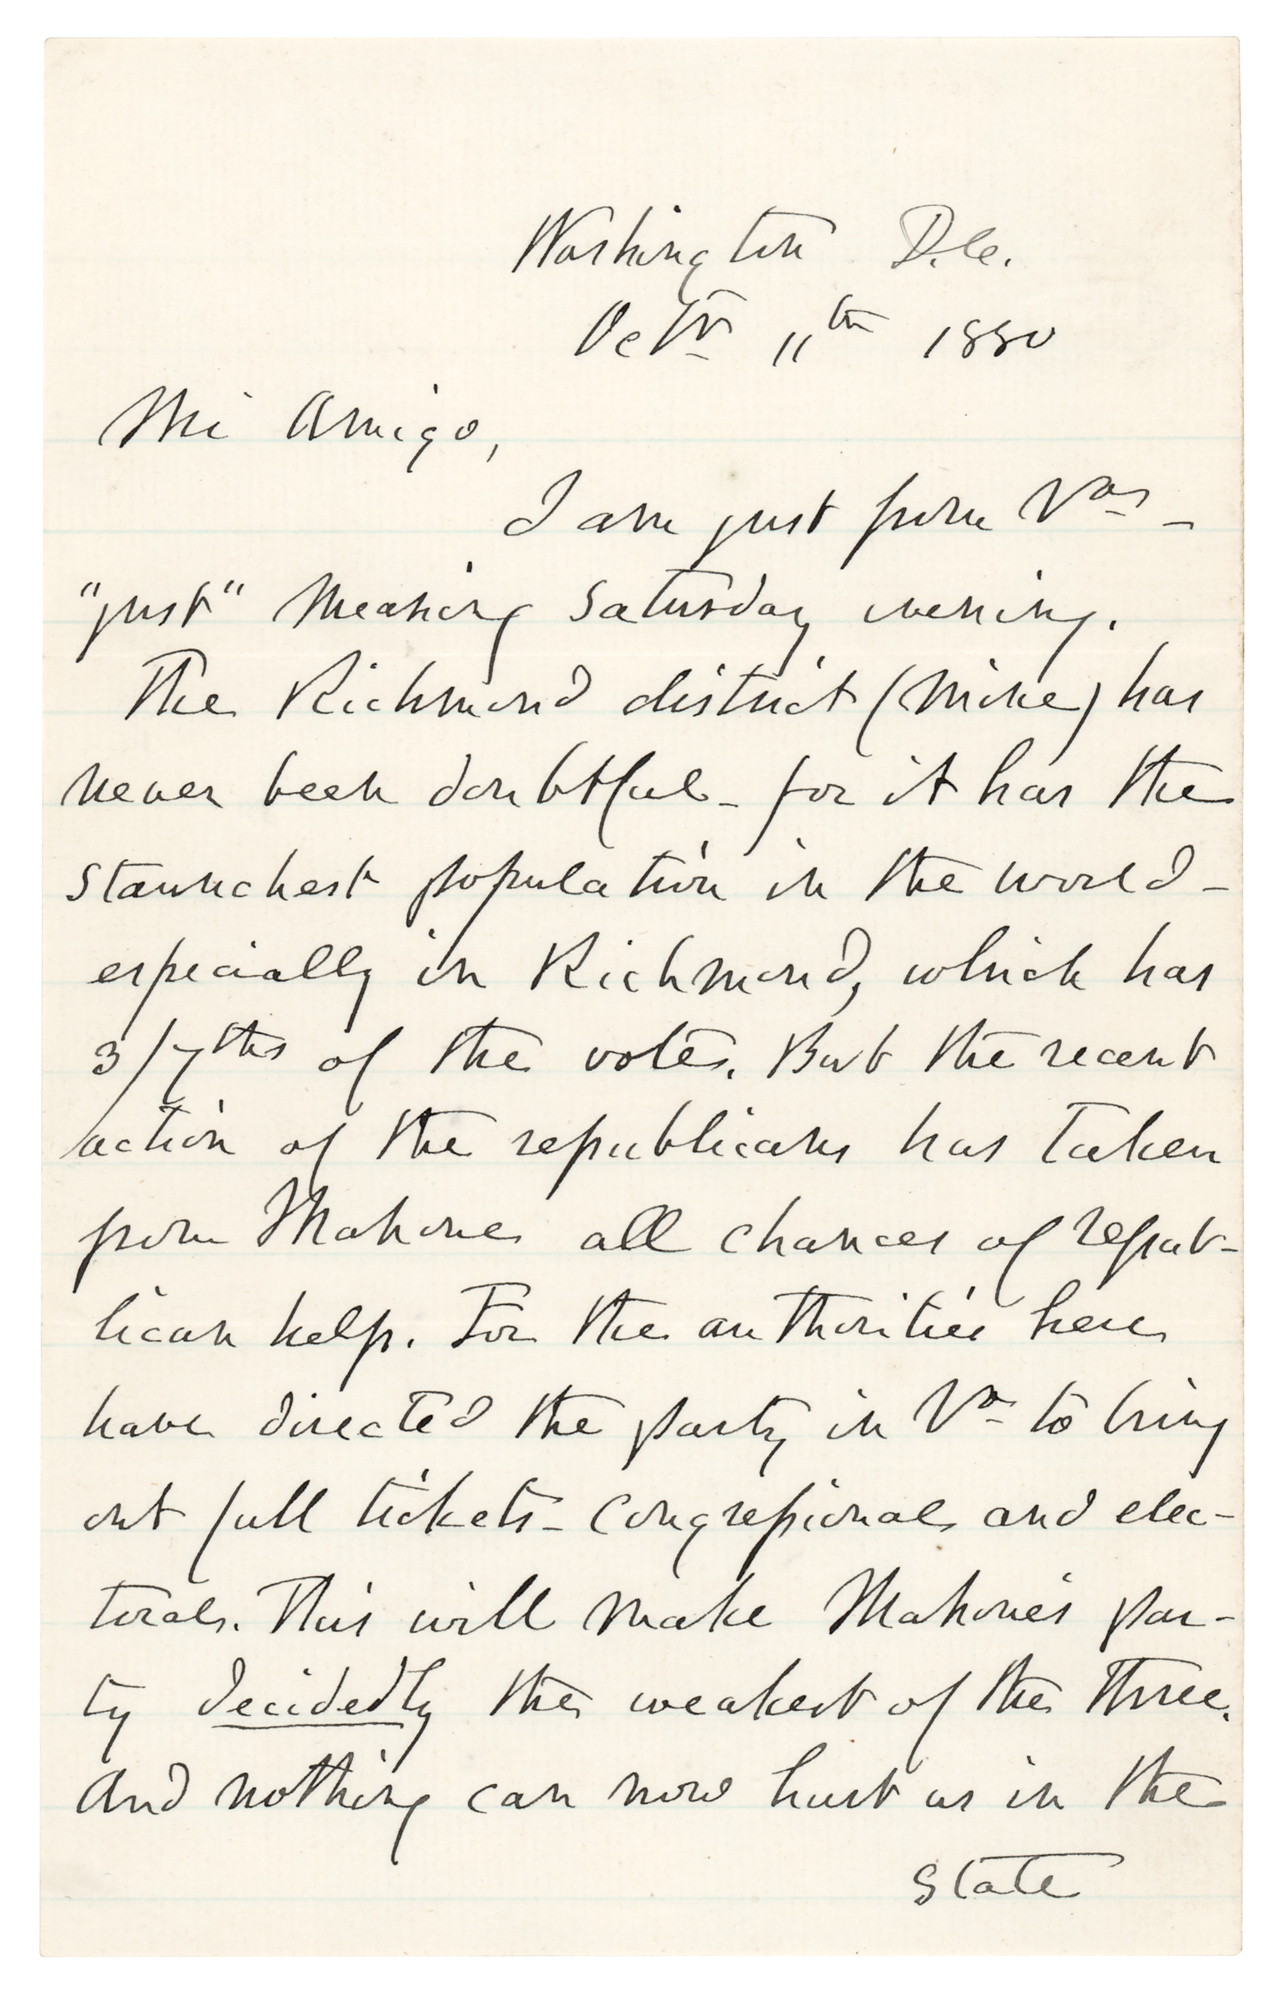 Washington D.C.
Octr. 11th 1880
Mi Amigo,
I am just from Vas. -
"just" meaning Saturday evening.
The Richmond district (mine) has
never been doubtful - for it has the
staunchest population in the world -
especially in Richmond, which has
3/7ths of the votes. But the recent
action of the republicans has taken
from Mahone all chances of repub-
lican help. For the authorities here
have directed the party in Va. to bring
out full tickets - Congressional and elec-
torals. This will make Mahone's par-
ty decidedly the weakest of the three.
And nothing can now hurt us in the
State